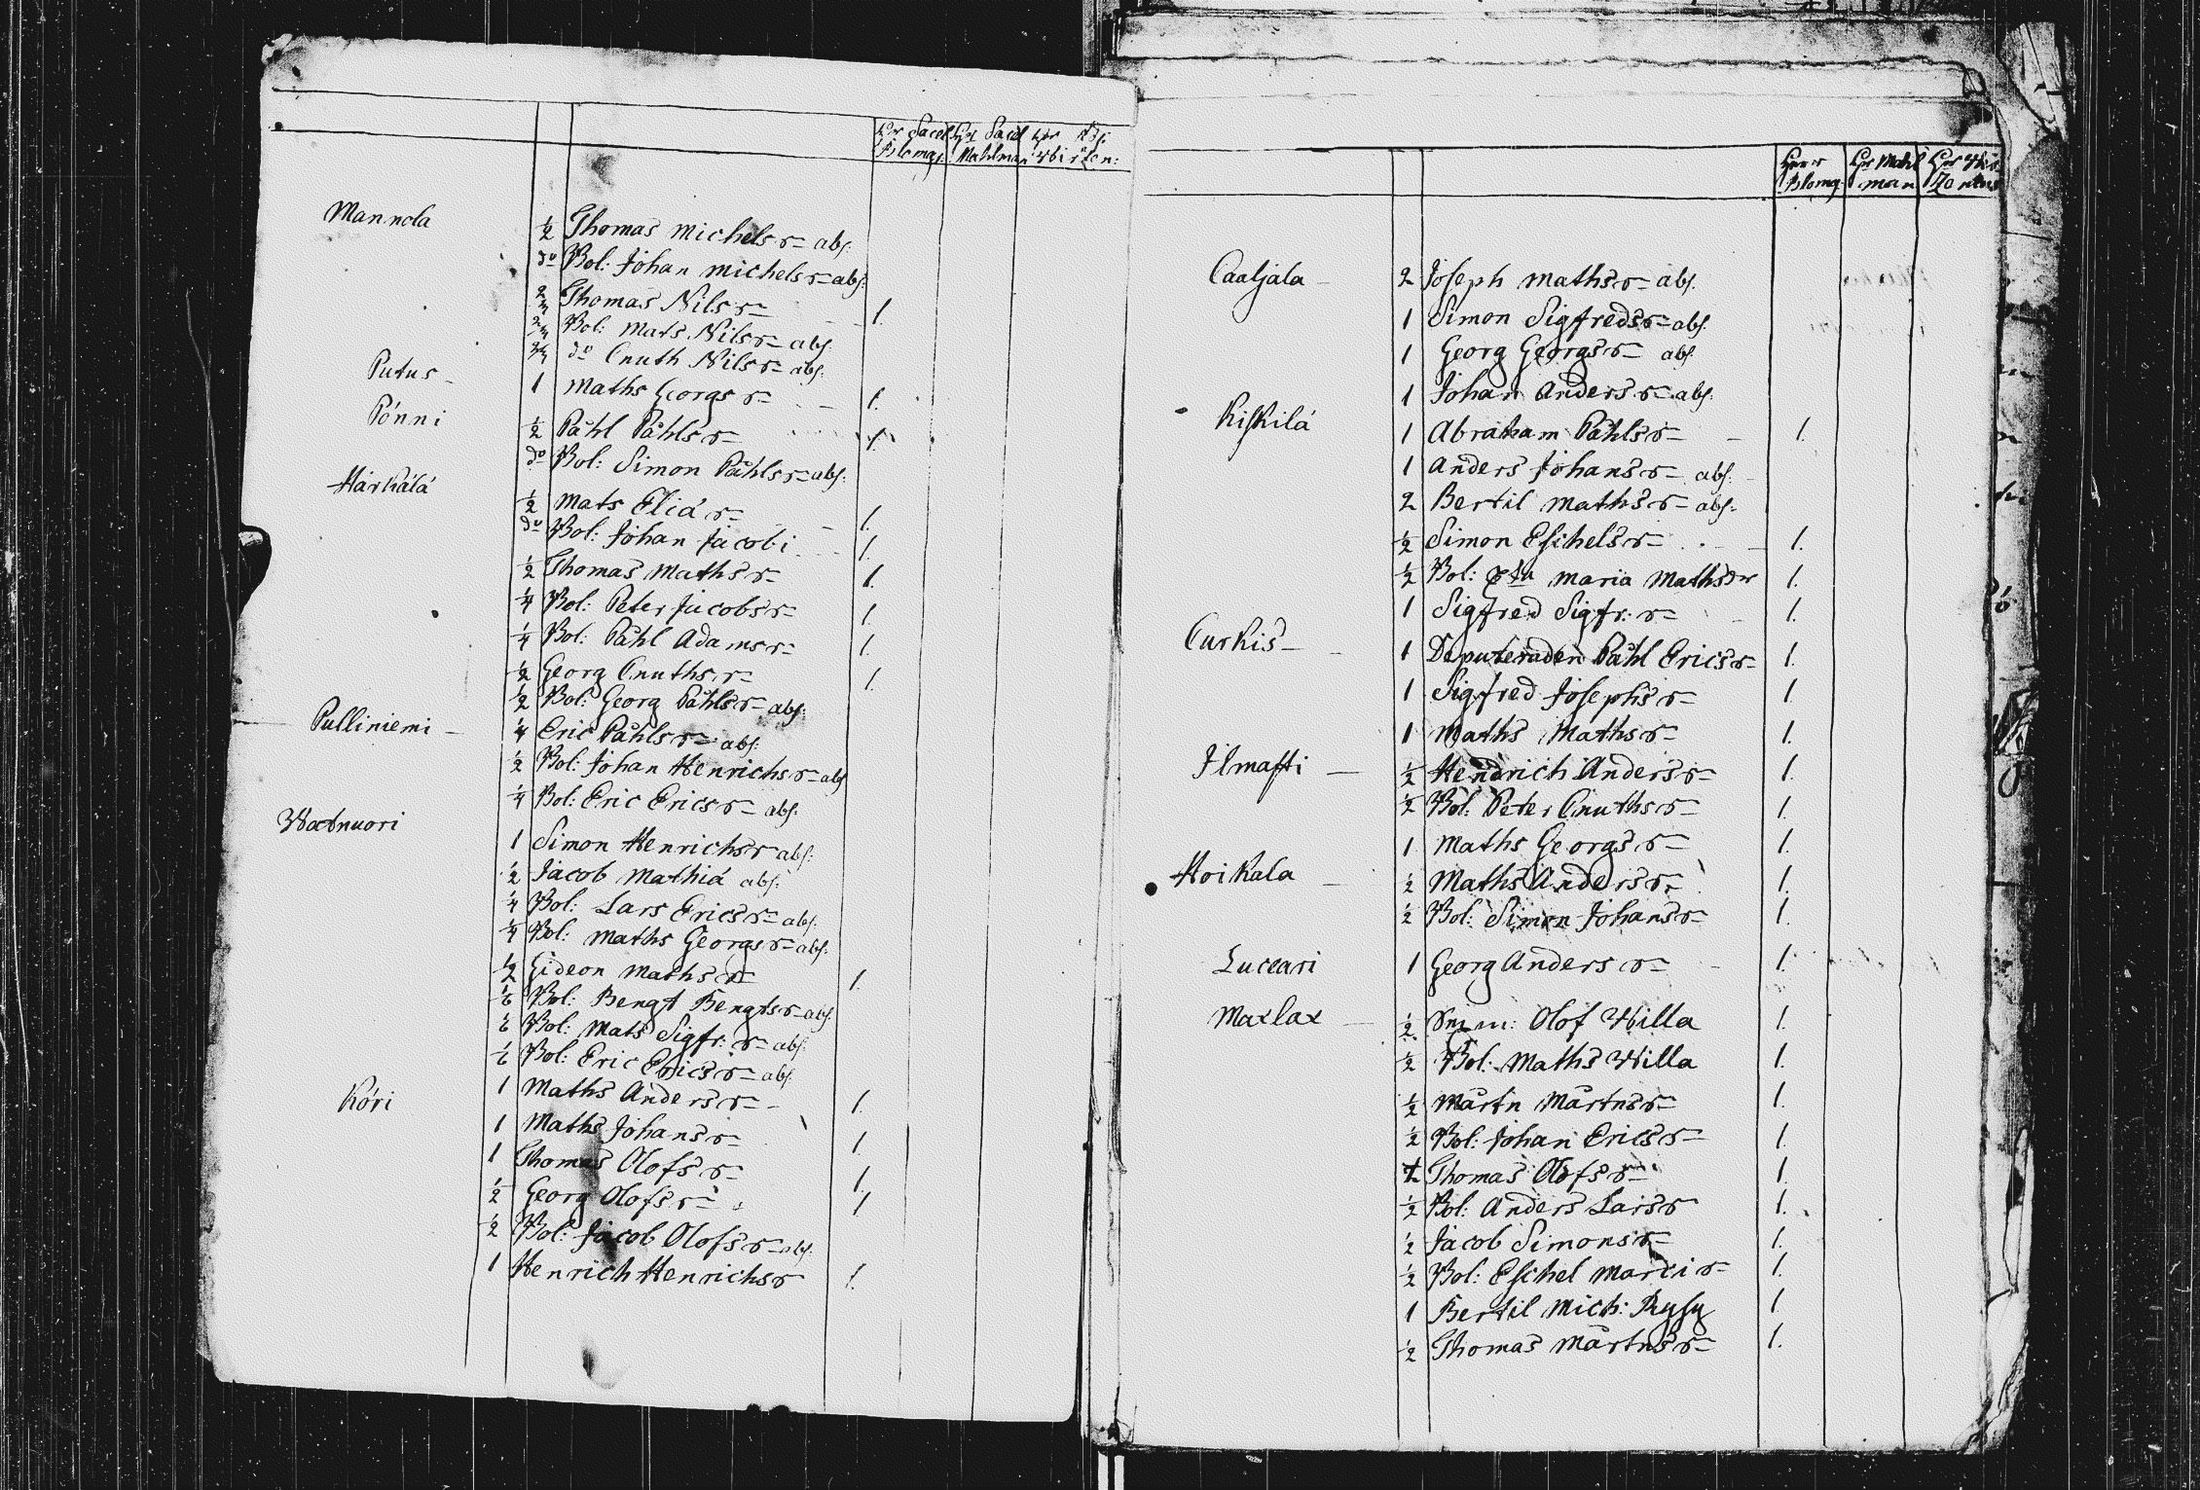 Hr Sacel Hr Sacel Hr
Blomq: Mahlman Wirzen:
Mannola
½ Thomas Michelss: abs:
do Bol: Johan Michelss: abs:
Thomas Nilss: 1.
Bol: Mats Nilss: abs:
do Cnuth Nilss: abs:
Putus 1 Maths Georgss: 1.
Pönni
½ Påhl Påhlss: 1.
do Bol: Simon Påhlss: abs:
Härkälä
½ Mats Eliæ s: 1.
do Bol: Johan Jacobi 1.
½ Thomas Mathss: 1.
¼ Bol: Peter Jacobss: 1.
¼ Bol: Påhl Adamss: 1.
½ Georg Cnuthss: 1.
½ Bol: Georg Påhlss: abs:
Pulliniemi ¼ Eric Påhlss: abs:
½ Bol: Johan Henrichss: abs
¼ Bol: Eric Ericss: abs:
Watnuori
1 Simon Henrichss abs:
½ Jacob Mathiæ abs:
¼ Bol: Lars Ericss: abs:
¼ Bol: Maths Georgss: abs:
½ Gideon Mathss: 1.
⅙ Bol: Bengt Bengtss: abs:
⅙ Bol: Mats Sigfr: s: abs:
⅙ Bol: Eric Ericss: abs:
Köri 1 Maths Anderss: 1.
1 Maths Johanss: 1
1 Thomas Olofss: 1.
½ Georg Olofss: 1
½ Bol: Jacob Olofss: abs:
1 Henrich Henrichss 1.
Herr Hr Mahl Hr Wir
Blomq: man Zenius
Caaljala 2 Joseph Mathss: abs.
1 Simon Sigfredss: abs.
1 Georg Georgss: abs
1 Johan Anderss: abs:
Kiskilä 1 Abraham Påhlss: 1.
1 Anders Johanss: abs:
2 Bertil Mathss: abs:
½ Simon Eschelss: 1.
½ Bol: Maria Mathsdr 1.
1 Sigfred Sigfr: s: 1.
Curkis 1 Deputeraden Påhl Ericss: 1.
1 Sigfred Josephss: 1.
1 Maths Mathss: 1.
Jlmasti ½ Hendrich Anderss: 1.
½ Bol: Peter Cnuthss: 1.
1 Maths Georgss: 1.
Hoikala ½ Maths Anderss: 1.
½ Bol: Simon Johanss: 1.
Luceari 1 Georg Anderss: 1.
Maxlax ½ Olof Willa 1.
½ Bol: Maths Willa 1.
½ Mårtn Mårtnss: 1.
½ Bol: Johan Ericss: 1.
½ Thomas Olofss: 1.
½ Bol: Anders Larss 1.
½ Jacob Simonss: 1.
½ Bol: Eschel Marci s: 1.
1 Bertil Mich: Rysy 1.
½ Thomas Mårtnss: 1.